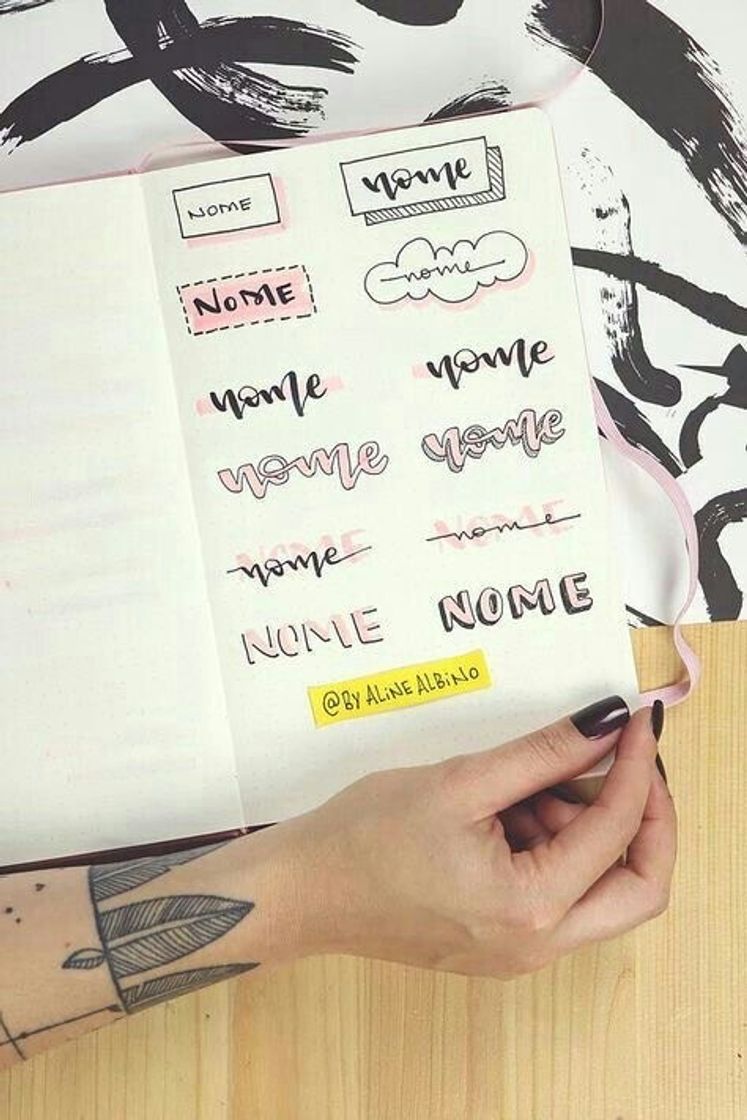 NOME nome
NOME nome
nome nome
nome nome
nome nome
NOME NOME
@BY ALiNE ALBiNO